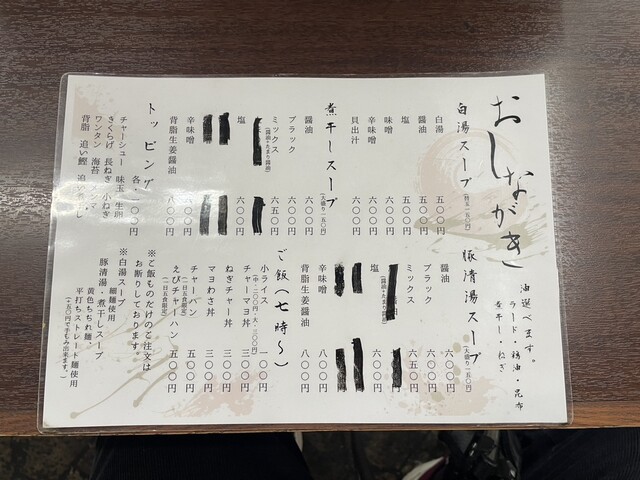 おしながき
油選べます。
ラード・鶏油・昆布
煮干し・ねぎ
白湯スープ
白湯 五〇〇円
醤油 五〇〇円
塩 五〇〇円
味噌 六〇〇円
辛味噌
貝出汁 六〇〇円
煮干しスープ
(大盛り一五〇円)
醤油 六〇〇円
ブラック 六〇〇円
ミックス
塩 六〇〇円
辛味噌 八〇〇円
背脂生姜醤油 八〇〇円
トッピング
各・一〇〇円
チャーシュー 味玉 生卵
きくらげ 長ねぎ 小ねぎ
ワンタン 海苔
背脂 追い鰹
豚清湯スープ
(大盛り一五〇円)
醤油 六〇〇円
ブラック 六五〇円
ミックス
塩 六〇〇円
辛味噌 八〇〇円
背脂生姜醤油 八〇〇円
ご飯(七時〜)
小ライス 一〇〇円
(中・二〇〇円・大・三〇〇円)
チャーマヨ丼 三〇〇円
ねぎチャー丼 三〇〇円
マヨわさ丼 三〇〇円
チャーハン 五〇〇円
(一日五食限定)
えびチャーハン 五〇〇円
(一日五食限定)
※ご飯ものだけのご注文は
お断りしております。
※白湯スープ
細麺使用
豚清湯・煮干しスープ
黄色ちぢれ麺・
平打ちストレート麺使用
(+五〇円で手もみ出来ます。)